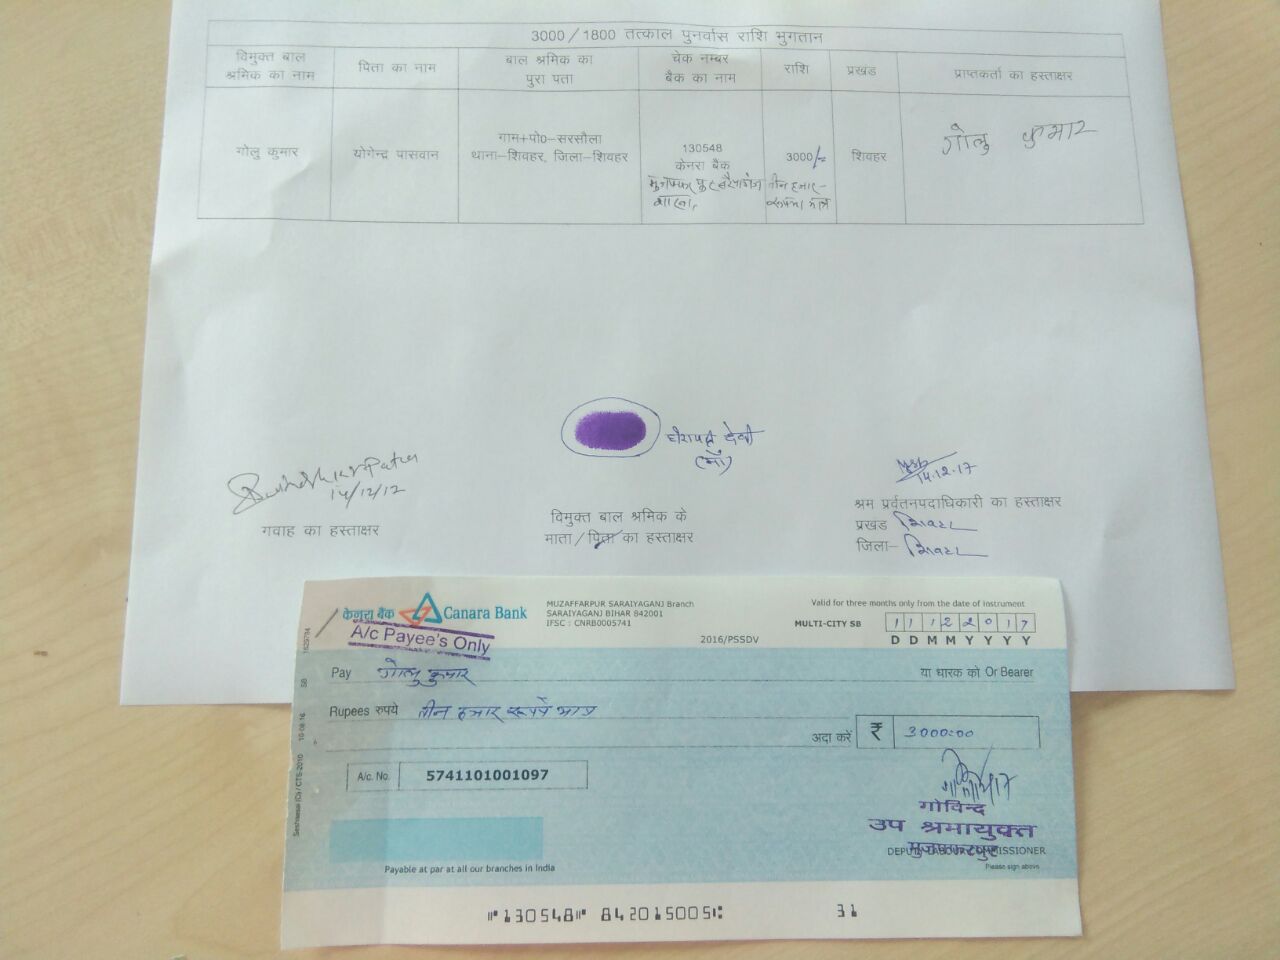 3000/1800 तत्काल पुनर्वास राशि भुगतान
विमुक्त बाल श्रमिक का नाम
पिता का नाम
बाल श्रमिक का पुरा पता
चेक नम्बर बैक का नाम
राशि
प्रखंड
प्राप्तकर्ता का हस्ताक्षर
गोलु कुमार
योगेन्द्र पासवान
गाम+पो0–सरसौला
थाना–शिवहर, जिला–शिवहर
130548
केनरा बैक
3000/-
तीन हजार
शिवहर
गोलु कुमार
देवी
(माँ)
14/12/17
गवाह का हस्ताक्षर
विमुक्त बाल श्रमिक के
माता/पिता का हस्ताक्षर
14.12.17
श्रम प्रर्वतनपदाधिकारी का हस्ताक्षर
प्रखंड शिवहर
जिला– शिवहर
केनरा बैंक Canara Bank
A/c Payee's Only
MUZAFFARPUR SARAIYAGANJ Branch
SARAIYAGANJ BIHAR 842001
IFSC : CNRB0005741
2016/PSSDV
Valid for three months only from the date of instrument
MULTI-CITY SB
11122017
D D M M Y Y Y Y
Pay गोलु कुमार
या धारक को Or Bearer
Rupees रुपये तीन हजार रूपये मात्र
अदा करें ₹ 3000=00
A/c. No. 5741101001097
गोविन्द
उप श्रमायुक्त
मुजफ्फरपुर
DEPUTY LABOUR COMMISSIONER
Please sign above
Payable at par at all our branches in India
⑈130548⑈ 842015005⑆ 31